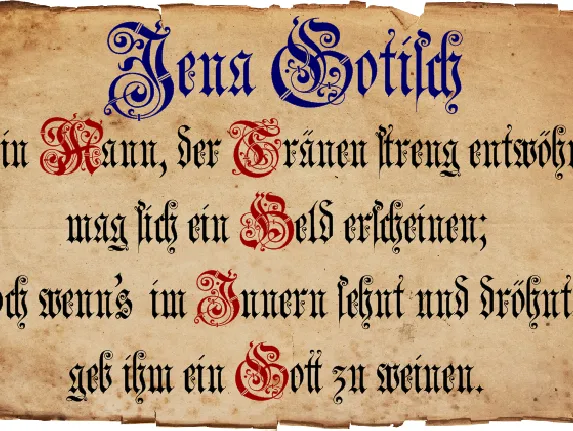 Jena Gotiſch
in Mann, der Tränen ſtreng entwöhn
mag ſich ein Held erſcheinen;
och wenn's im Innern ſehnt und dröhnt
geb ihm ein Gott zu weinen.